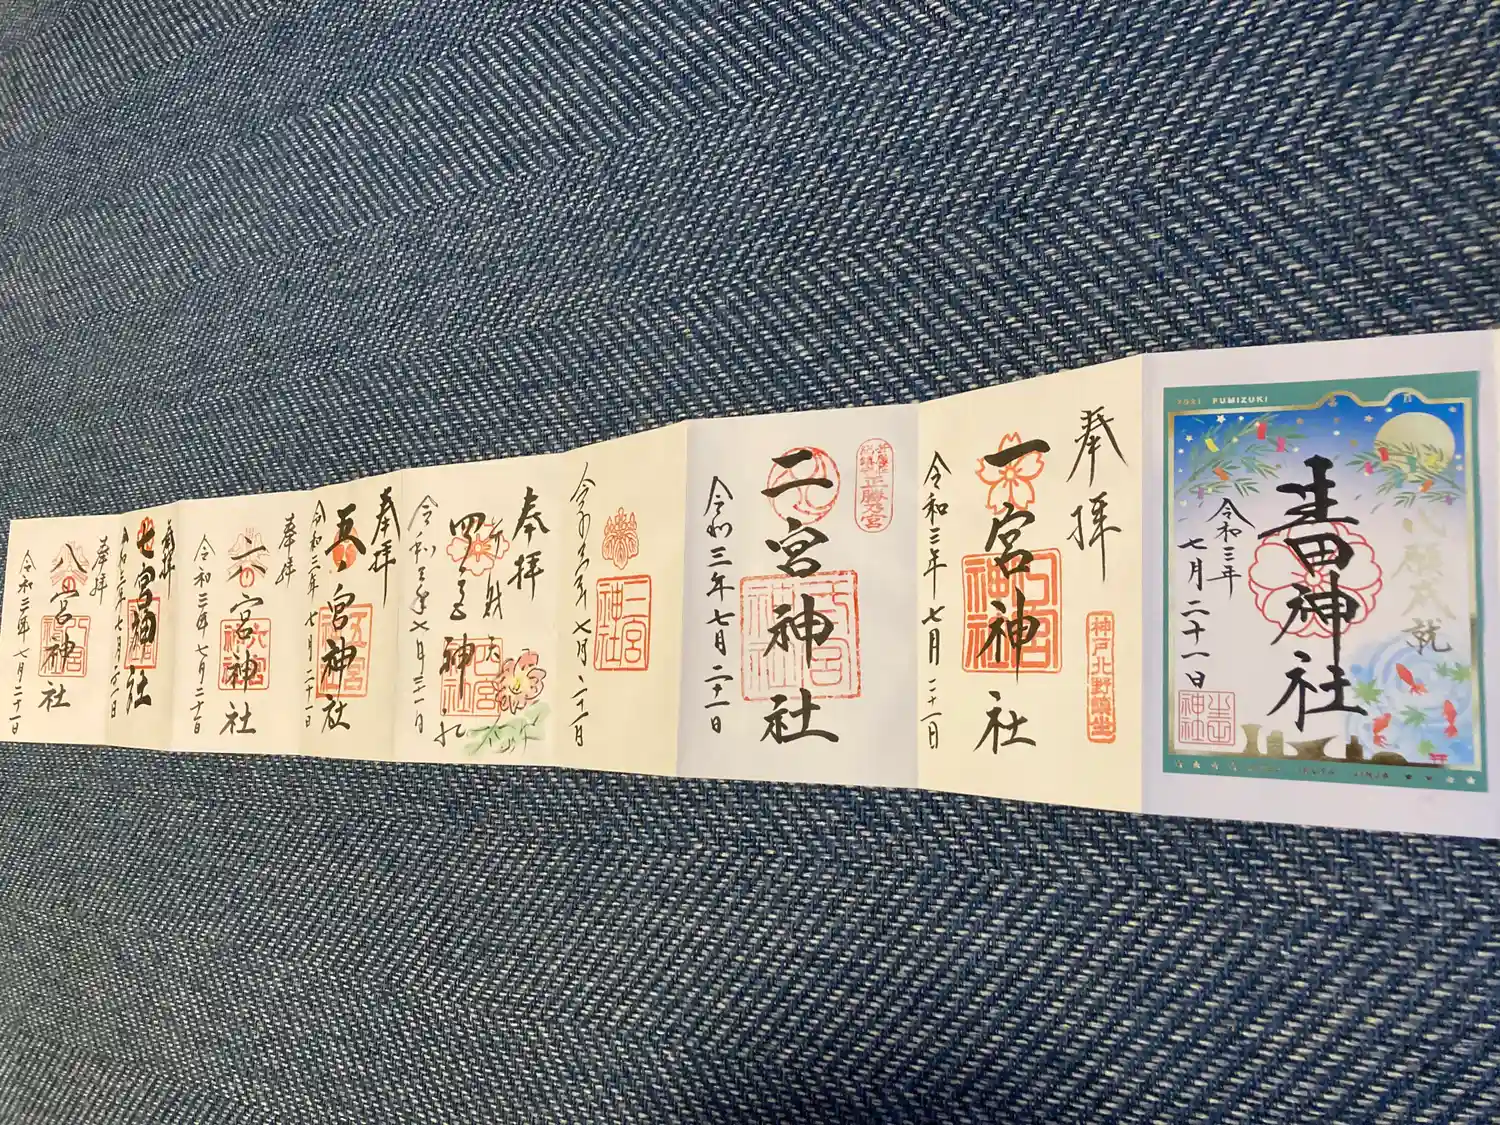 2021 FUMIZUKI
心願成就
生田神社
令和三年
七月二十一日
生田
神社
奉拝
一宮神社
神戸北野鎮座
一宮
神社
令和三年七月二十一日
正勝乃宮
二宮神社
令和三年七月二十一日
三宮
神社
令和三年七月二十一日
奉拝
弁財天
四宮神社
令和三年七月二十一日
奉拝
五宮神社
五宮
令和三年七月二十一日
奉拝
六宮神社
令和三年七月二十一日
奉拝
七宮神社
令和三年七月二十一日
奉拝
八宮神社
令和三年七月二十一日